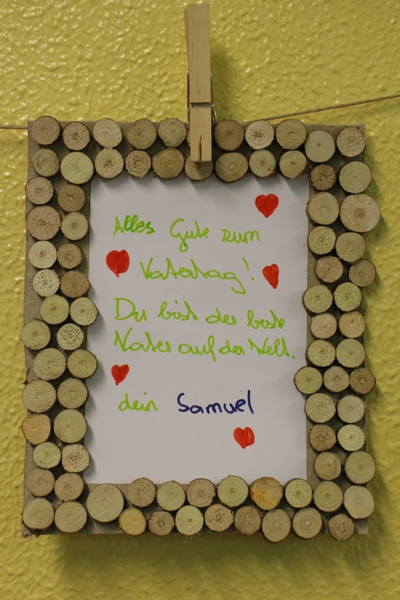 Alles Gute zum
Vatertag!
Du bist der beste
Vater auf der Welt.
dein Samuel